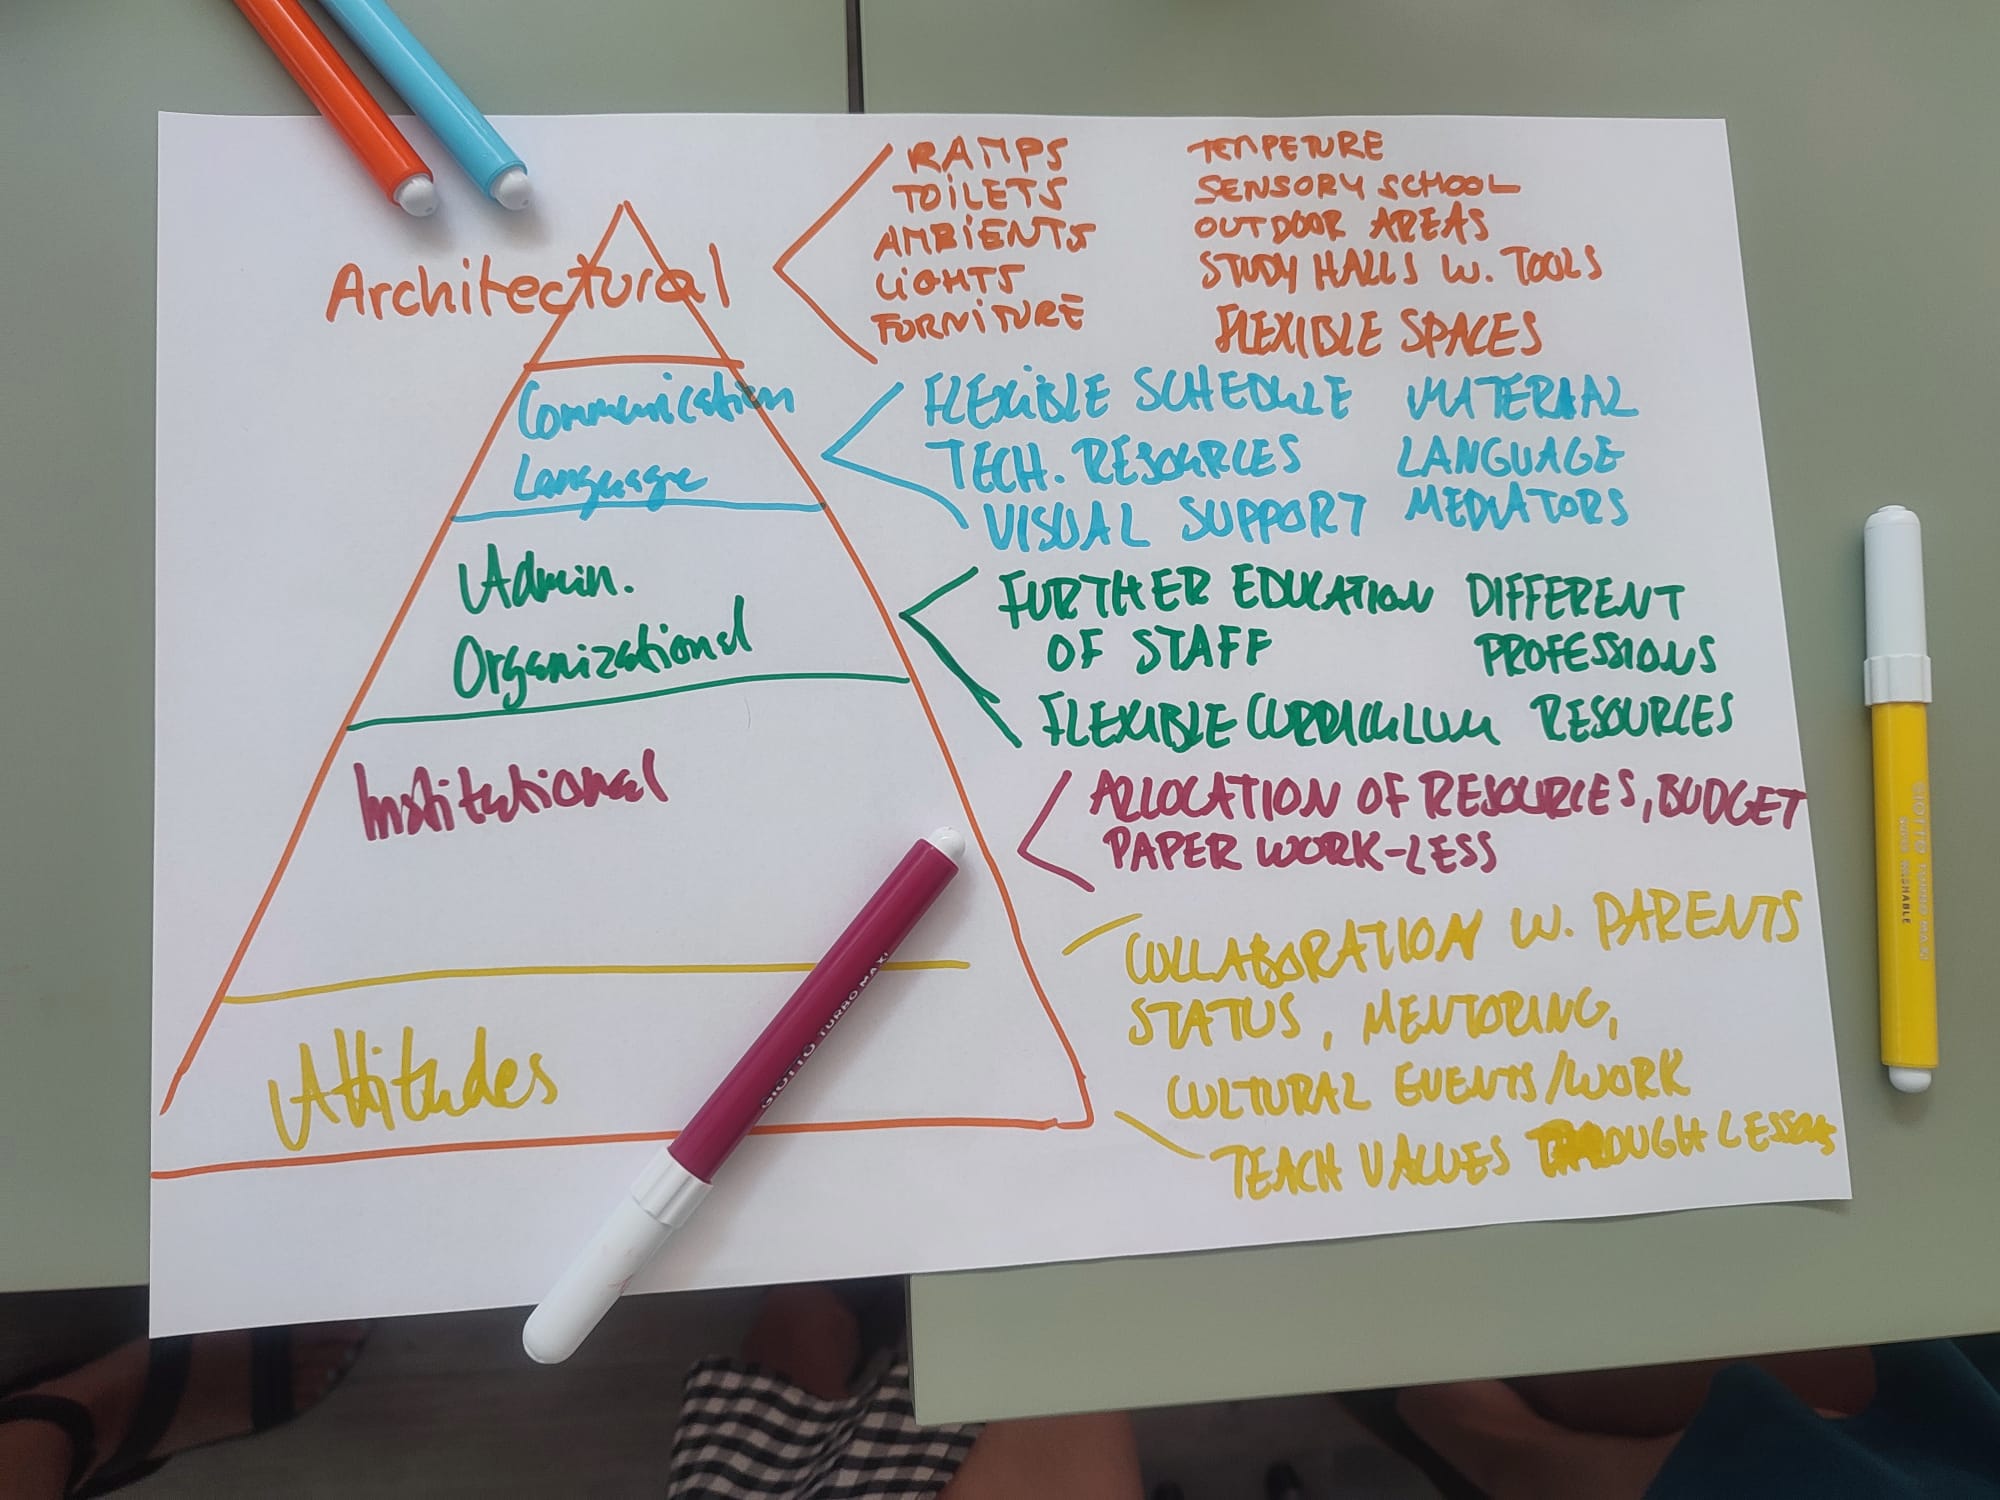 Architectural
RAMPS
TOILETS
AMBIENTS
LIGHTS
FORNITURE
TEMPETURE
SENSORY SCHOOL
OUTDOOR AREAS
STUDY HALLS W. TOOLS
FLEXIBLE SPACES
Communication
Language
FLEXIBLE SCHEDULE
TECH. RESOURCES
VISUAL SUPPORT
MATERIAL
LANGUAGE
MEDIATORS
Admin.
Organizational
FURTHER EDUCATION
OF STAFF
FLEXIBLE CURRICULUM
DIFFERENT
PROFESSIONS
RESOURCES
Institutional
ALLOCATION OF RESOURCES, BUDGET
PAPER WORK-LESS
Attitudes
COLLABORATION W. PARENTS
STATUS, MENTORING,
CULTURAL EVENTS/WORK
TEACH VALUES THROUGH LESSONS
GIOTTO TURBO MAXI
GIOTTO TURBO MAXI
SUPER WASHABLE